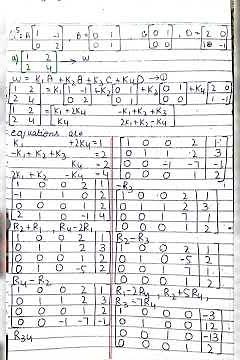 A [1 -1 0 2], B = [0 1 0 1], C [0 1 0 0], D = [2 0
a) [1 2 2 4] → w
w = K₁A + K₂B + K₃C + K₄D → ①
[1 2 2 4] = K₁ [1 -1 0 2] + K₂ [0 1 + K₃ [0 1 0 0] + K₄ [2 0
[1 2 2 4] = [K₁ + 2K₄ -K₁ + K₂ + K₃
equations are
K₁ + 2K₄ = 1
-K₁ + K₂ + K₃ = 2
K₄ = 2
2K₁ + K₂ - K₄ = 4
1 0 0 2 1
-1 1 1 0 2
0 0 0 1 2
2 1 0 -1 4
R₂ + R₁, R₄ - 2R₁
1 0 0 2 1
0 1 1 2 3
0 0 0 1 2
0 1 0 -5 2
R₄ - R₂
1 0 0 2 1
0 1 1 2 3
0 0 0 1 2
0 0 -1 -7 -1
R₃₄
1 0 0 2 1
0 1 1 2 3
0 0 -1 -7 -1
0 0 0 1 2
-R₃
1 0 0 2 1
0 1 1 2 3
0 0 1 7 1
0 0 0 1 2
R₂ - R₃
1 0 0 2 1
0 1 0 -5 2
0 0 1 7 1
0 0 0 1 2
R₁ - 2R₄, R₂ + 5R₄,
R₃ - 7R₄
1 0 0 0 -3
0 1 0 0 12
0 0 1 0 -13
0 0 0 1 2